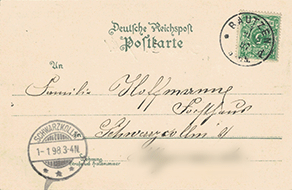 Deutsche Reichspost
Postkarte
BAUTZEN
An
Familie Hoffmann
Forsthaus
Schwarzcollm
SCHWARZKOLLM
1-1 98 3-4N